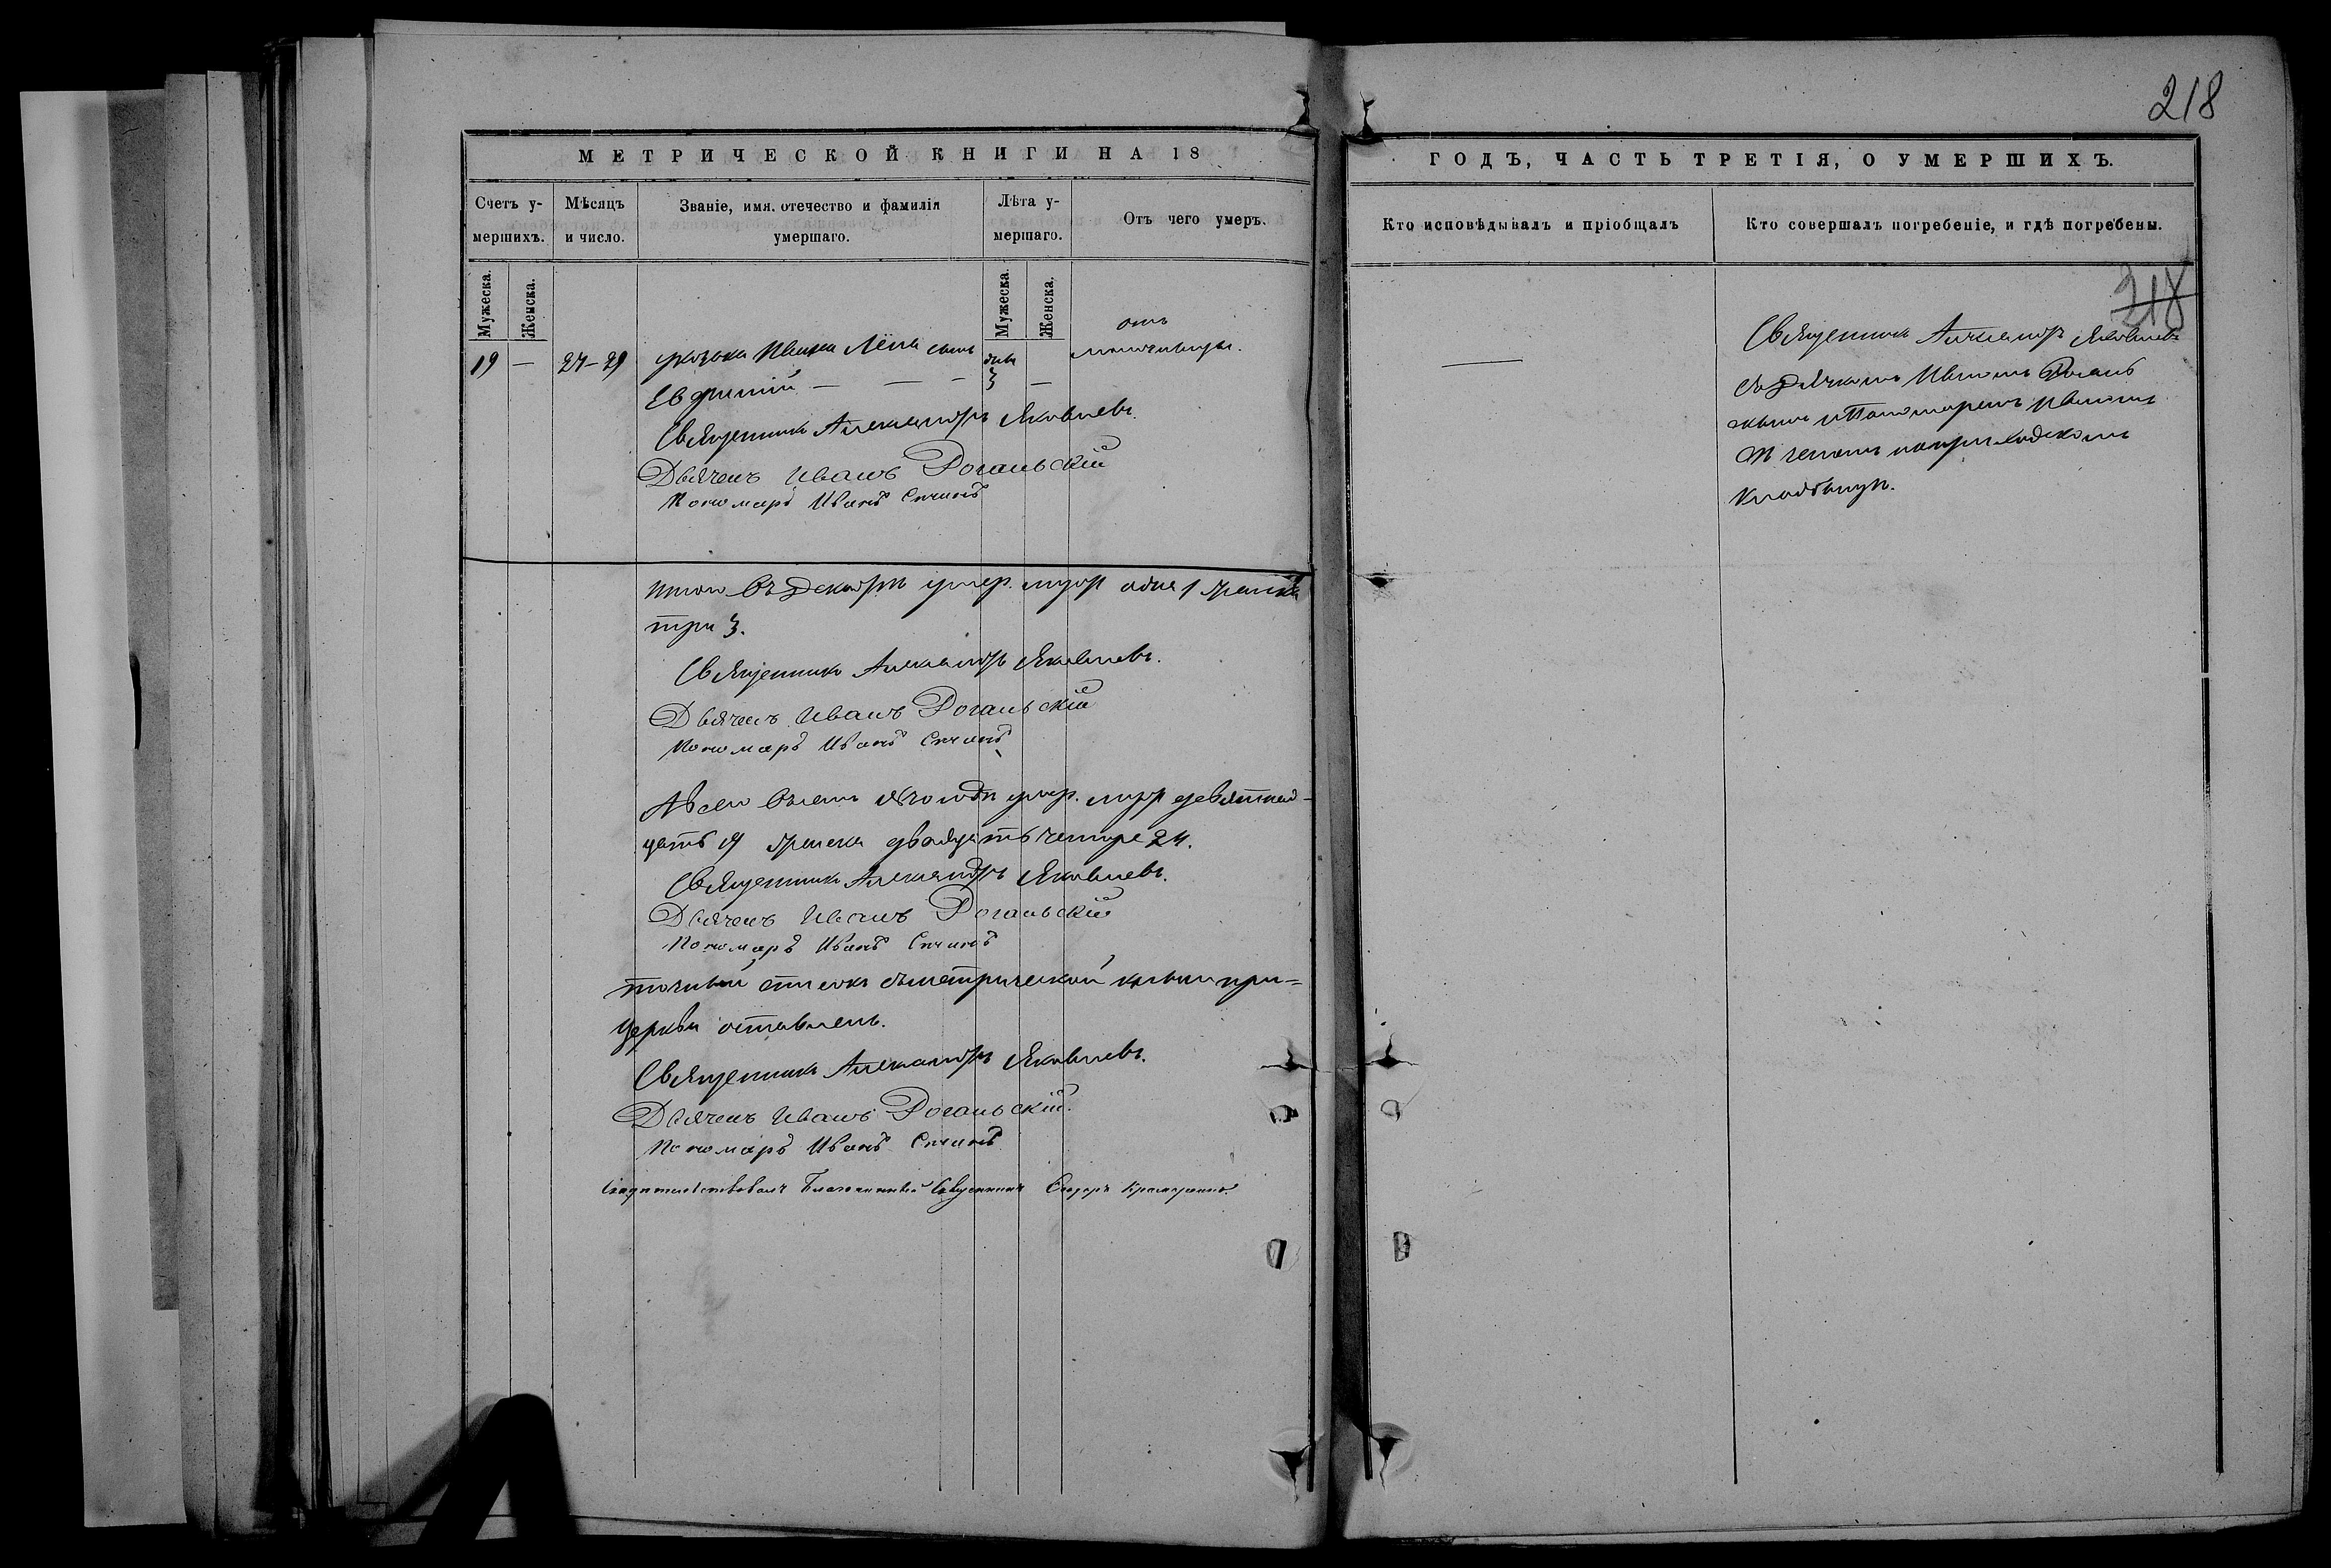 218
МЕТРИЧЕСКОЙ КНИГИ НА 18
Счетъ у-
мершихъ.
Мѣсяцъ
и число.
Званіе, имя, отечество и фамилія
умершаго.
Лѣта у-
мершаго.
Отъ чего умеръ.
Мужеска.
Женска.
Мужеска.
Женска.
19 — 27-29 Козака Ивана сынъ
Евфимій — — — 3 —
отъ
Священникъ Александръ Яковлевъ.
Дьячекъ Иванъ Рогальскій
Пономарь Иванъ
Итого въ Декабрѣ умер. муж. одна 1 женска
три 3.
Священникъ Александръ Яковлевъ.
Дьячекъ Иванъ Рогальскій
Пономарь Иванъ
А всего въ семъ году умер. муж. девятнад-
цать 19 женска двадцать четыре 24.
Священникъ Александръ Яковлевъ.
Дьячекъ Иванъ Рогальскій
Пономарь Иванъ
Точный списокъ съ метрической книги при-
церкви оставленъ.
Священникъ Александръ Яковлевъ.
Дьячекъ Иванъ Рогальскій.
Пономарь Иванъ
Свидѣтельствовалъ Благочинный Священникъ
ГОДЪ, ЧАСТЬ ТРЕТІЯ, О УМЕРШИХЪ.
Кто исповѣдывалъ и пріобщалъ
Кто совершалъ погребеніе, и гдѣ погребены.
218
Священникъ Александръ Яковлевъ
съ Дьячкомъ Иваномъ Рогаль
скимъ и Пономаремъ Иваномъ
на приходскомъ
кладбищѣ.